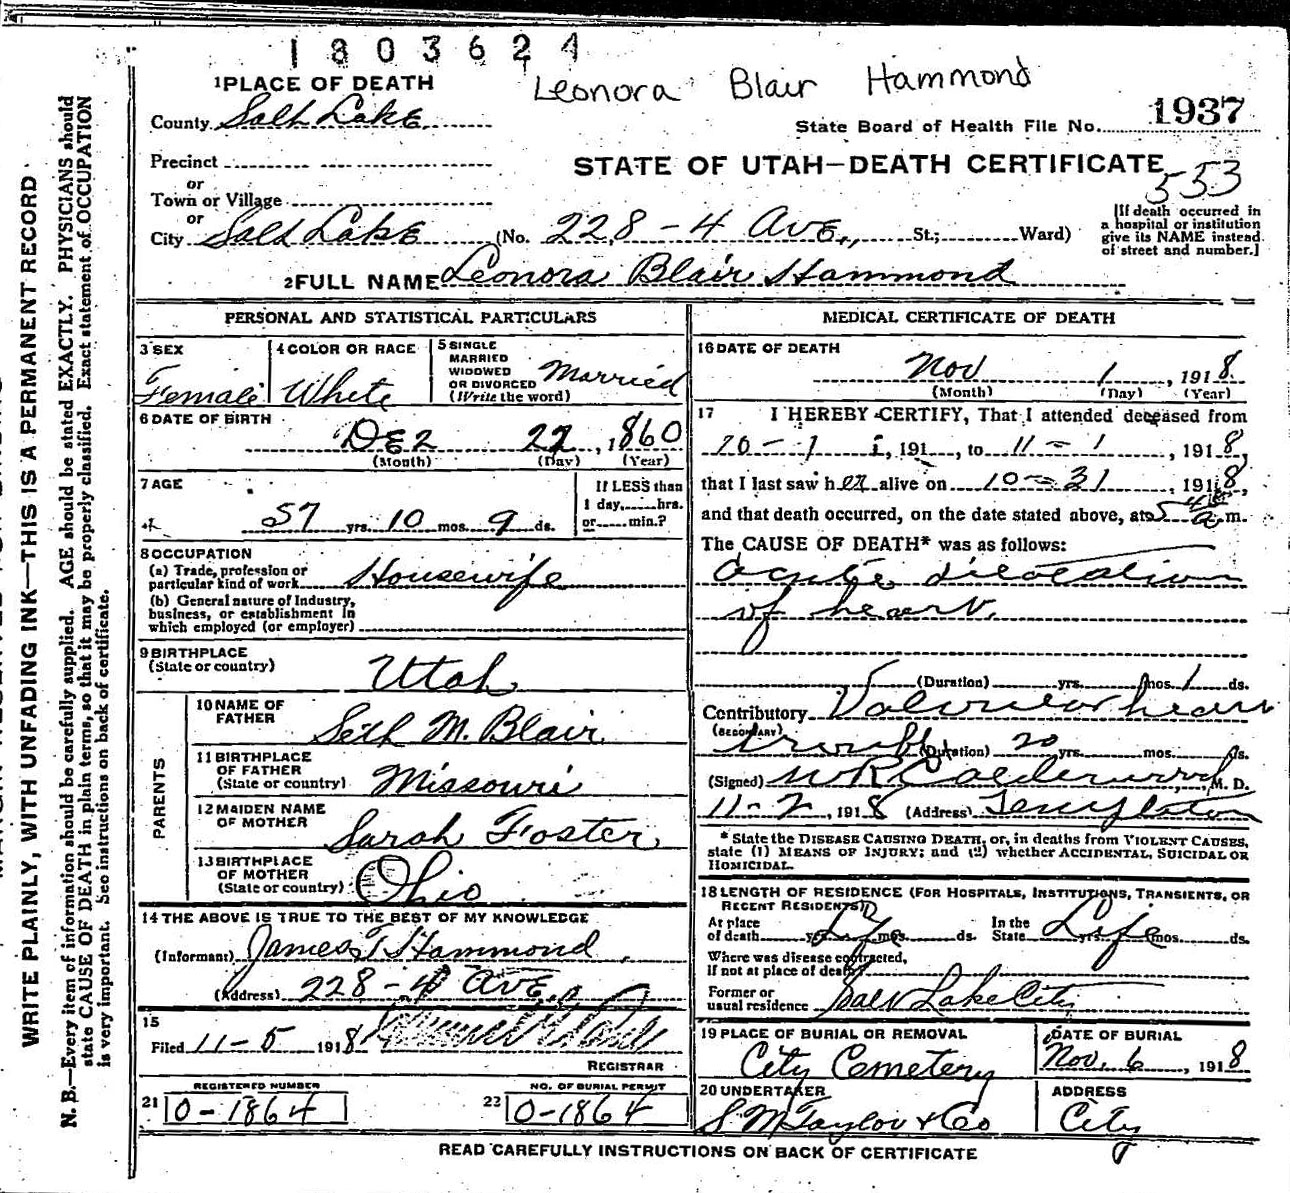 1803624
Leonora Blair Hammond
1 PLACE OF DEATH
County Salt Lake
State Board of Health File No. 1937
Precinct
STATE OF UTAH—DEATH CERTIFICATE
553
or
Town or Village
or
City Salt Lake (No. 228 - 4 Ave., St.; Ward)
[If death occurred in
a hospital or institution
give its NAME instead
of street and number.]
2 FULL NAME Leonora Blair Hammond
PERSONAL AND STATISTICAL PARTICULARS
3 SEX
Female
4 COLOR OR RACE
White
5 SINGLE
MARRIED
WIDOWED
OR DIVORCED
(Write the word)
Married
6 DATE OF BIRTH
Dec 22, 1860
(Month) (Day) (Year)
7 AGE
57 yrs. 10 mos. 9 ds.
If LESS than
1 day, hrs.
or min.?
8 OCCUPATION
(a) Trade, profession or
particular kind of work Housewife
(b) General nature of Industry,
business, or establishment in
which employed (or employer)
9 BIRTHPLACE
(State or country)
Utah
PARENTS
10 NAME OF
FATHER
Seth M. Blair
11 BIRTHPLACE
OF FATHER
(State or country)
Missouri
12 MAIDEN NAME
OF MOTHER
Sarah Foster
13 BIRTHPLACE
OF MOTHER
(State or country)
Ohio
14 THE ABOVE IS TRUE TO THE BEST OF MY KNOWLEDGE
(Informant) James T Hammond
(Address) 228 - 4 Ave
15
Filed 11-5 1918
REGISTRAR
REGISTERED NUMBER
21 0-1864
NO. OF BURIAL PERMIT
22 0-1864
MEDICAL CERTIFICATE OF DEATH
16 DATE OF DEATH
Nov 1, 1918
(Month) (Day) (Year)
17 I HEREBY CERTIFY, That I attended deceased from
10-1, 191 , to 11-1, 1918,
that I last saw her alive on 10-31, 1918,
and that death occurred, on the date stated above, at 5 a m.
The CAUSE OF DEATH* was as follows:
acute dilatation
of heart.
(Duration) yrs. mos. 1 ds.
Contributory Valvular heart
(SECONDARY)
trouble (Duration) 20 yrs. mos. ds.
(Signed) W R Calderwood, M. D.
11-2, 1918 (Address) Templeton
* State the DISEASE CAUSING DEATH, or, in deaths from VIOLENT CAUSES,
state (1) MEANS OF INJURY; and (2) whether ACCIDENTAL, SUICIDAL OR
HOMICIDAL.
18 LENGTH OF RESIDENCE (FOR HOSPITALS, INSTITUTIONS, TRANSIENTS, OR
RECENT RESIDENTS)
At place
of death yrs. mos. ds.
In the
State Life yrs. mos. ds.
Where was disease contracted,
if not at place of death?
Former or
usual residence Salt Lake City
19 PLACE OF BURIAL OR REMOVAL
City Cemetery
DATE OF BURIAL
Nov. 6, 1918
20 UNDERTAKER
S M Taylor & Co
ADDRESS
City
READ CAREFULLY INSTRUCTIONS ON BACK OF CERTIFICATE
WRITE PLAINLY, WITH UNFADING INK—THIS IS A PERMANENT RECORD
N. B.—Every item of information should be carefully supplied. AGE should be stated EXACTLY. PHYSICIANS should
state CAUSE OF DEATH in plain terms, so that it may be properly classified. Exact statement of OCCUPATION
is very important. See instructions on back of certificate.